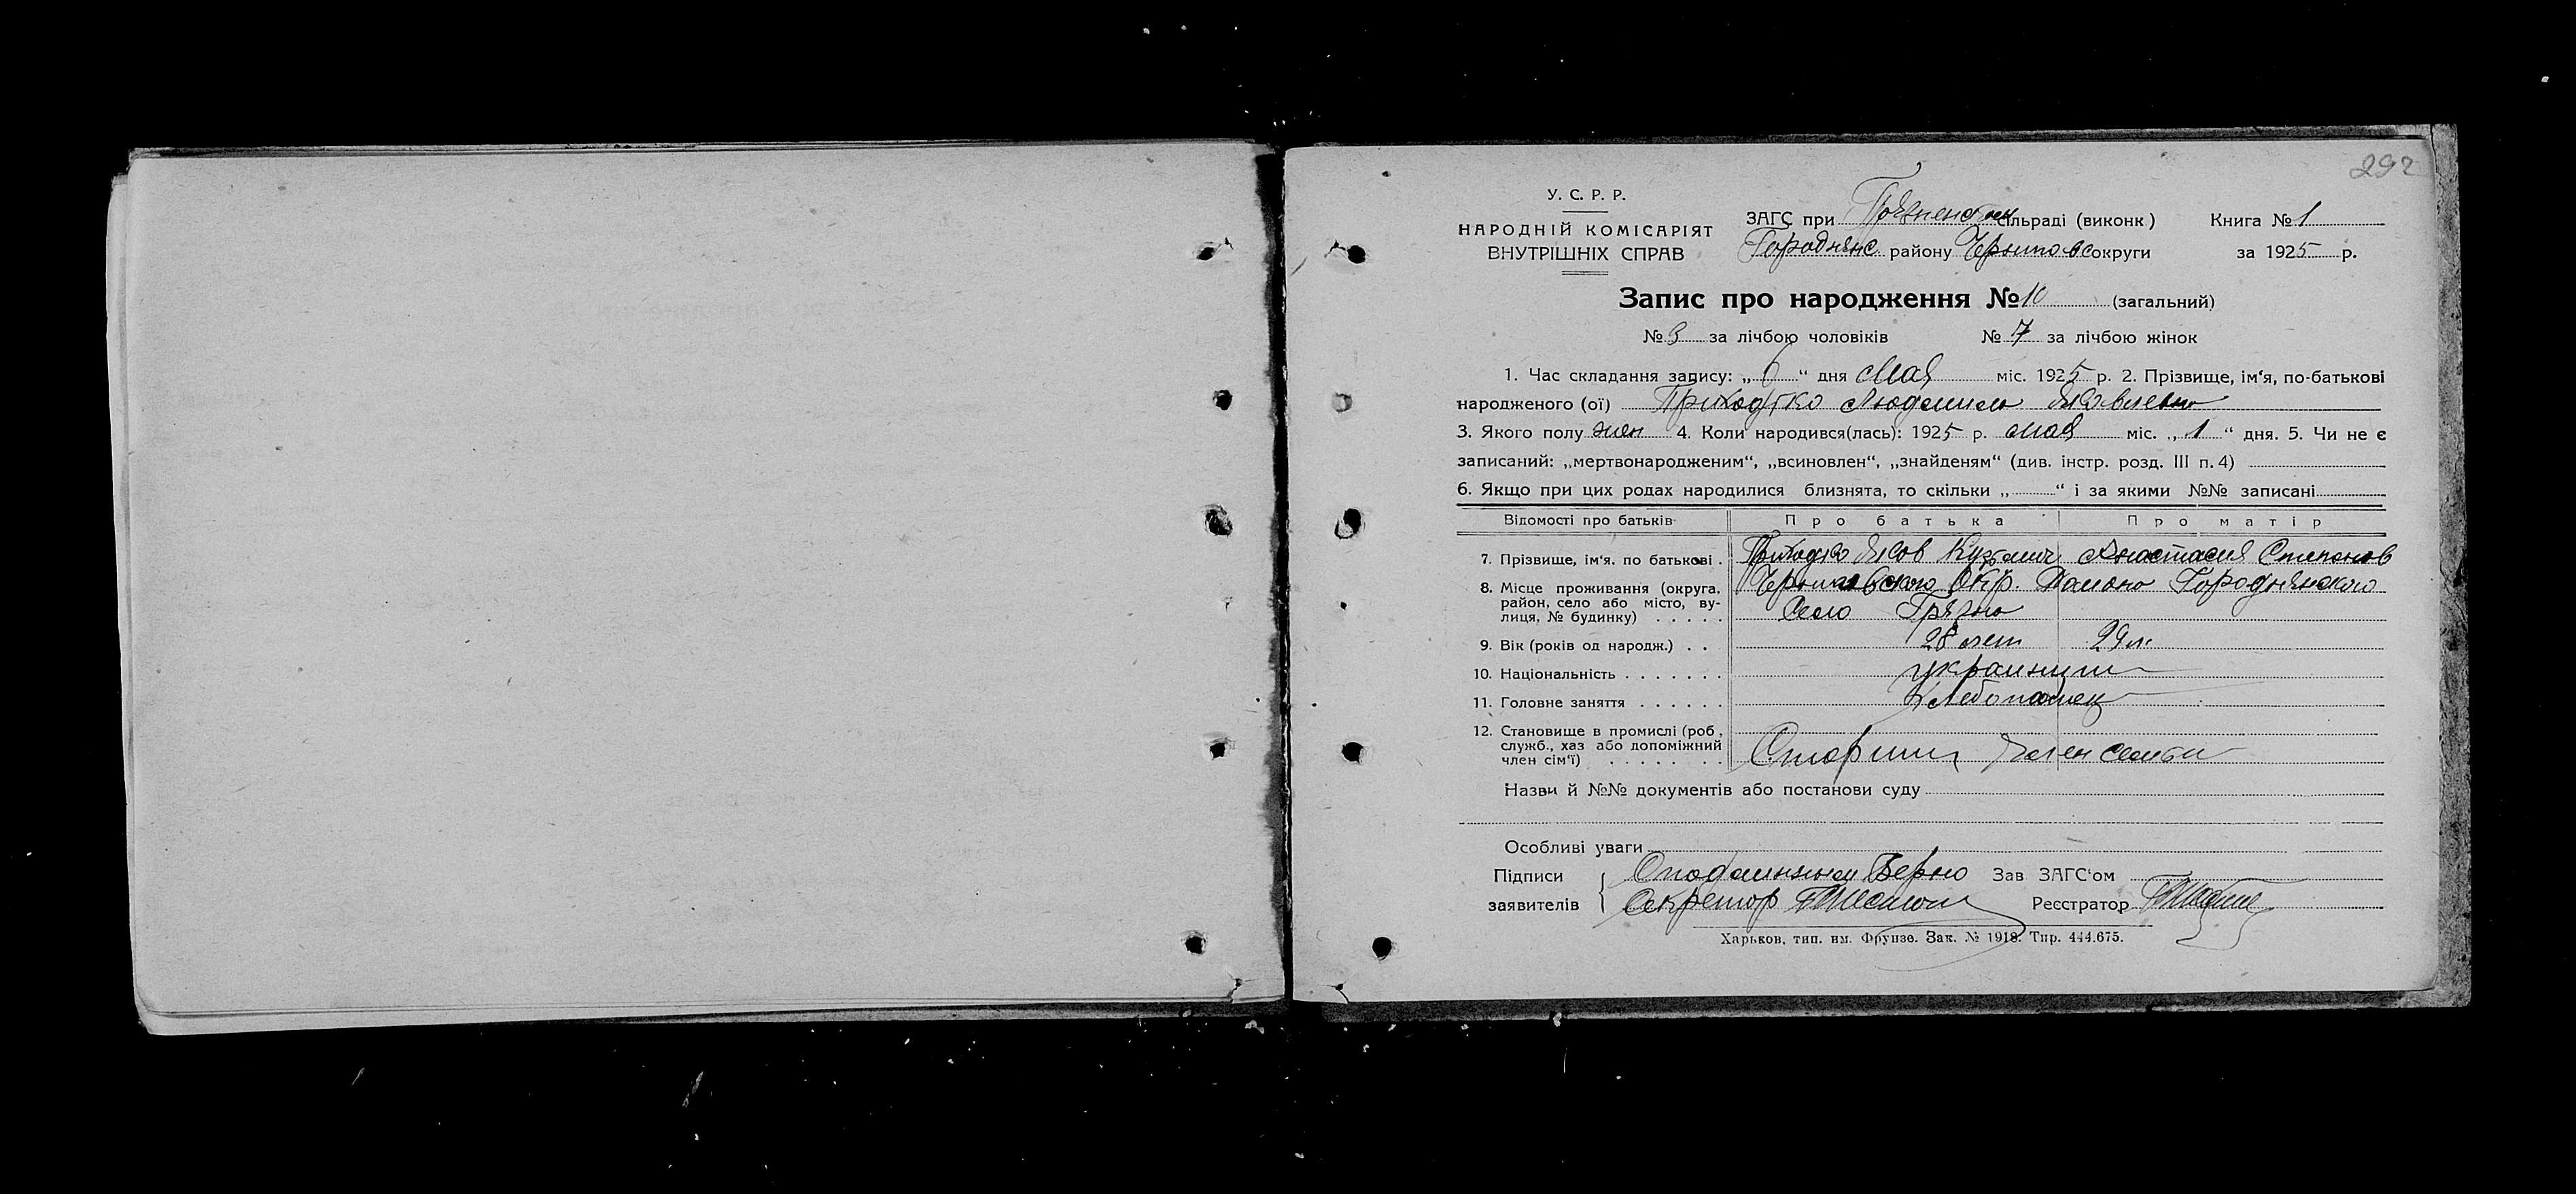 292
У. С. Р. Р.
НАРОДНІЙ КОМІСАРІЯТ
ВНУТРІШНІХ СПРАВ
ЗАГС при Грязненском сільраді (виконк.) Книга № 1
Городнянс району Чернигов округи за 1925 р.
Запис про народження № 10 (загальний)
№ 3 за лічбою чоловіків № 7 за лічбою жінок
1. Час складання запису: „ 6 “ дня Мая міс. 1925 р. 2. Прізвище, ім‘я, по-батькові
народженого (ої) Приходько Людмила Яковлевна
3. Якого полу жен 4. Коли народився(лась): 1925 р. мая міс. „ 1 “ дня. 5. Чи не є
записаний: „мертвонародженим“, „всиновлен“, „знайденям“ (див. інстр. розд. III п. 4)
6. Якщо при цих родах народилися близнята, то скільки „ “ і за якими №№ записані
Відомості про батьків Про батька Про матір
7. Прізвище, ім‘я, по батькові . Приходько Яков Кузьмич Анастасия Степанов
8. Місце проживання (округа, район, село або місто, вулиця, № будинку) Черниговского Окр. Района Городнянского
Село Грязно
9. Вік (років од народж.) . . 28 лет 29 л.
10. Національність . . . . . . . украинцы
11. Головне заняття . . . . . . Хлебопашец
12. Становище в промислі (роб., служб., хаз. або допоміжний член сім‘ї) . . . . . . . Старший Член семьи
Назви й №№ документів або постанови суду
Особливі уваги
Підписи заявителів { С подлинным Верно Зав ЗАГС‘ом
Секретар Реєстратор
Харьков, тип. им. Фрунзе. Зак. № 1918. Тир. 444.675.